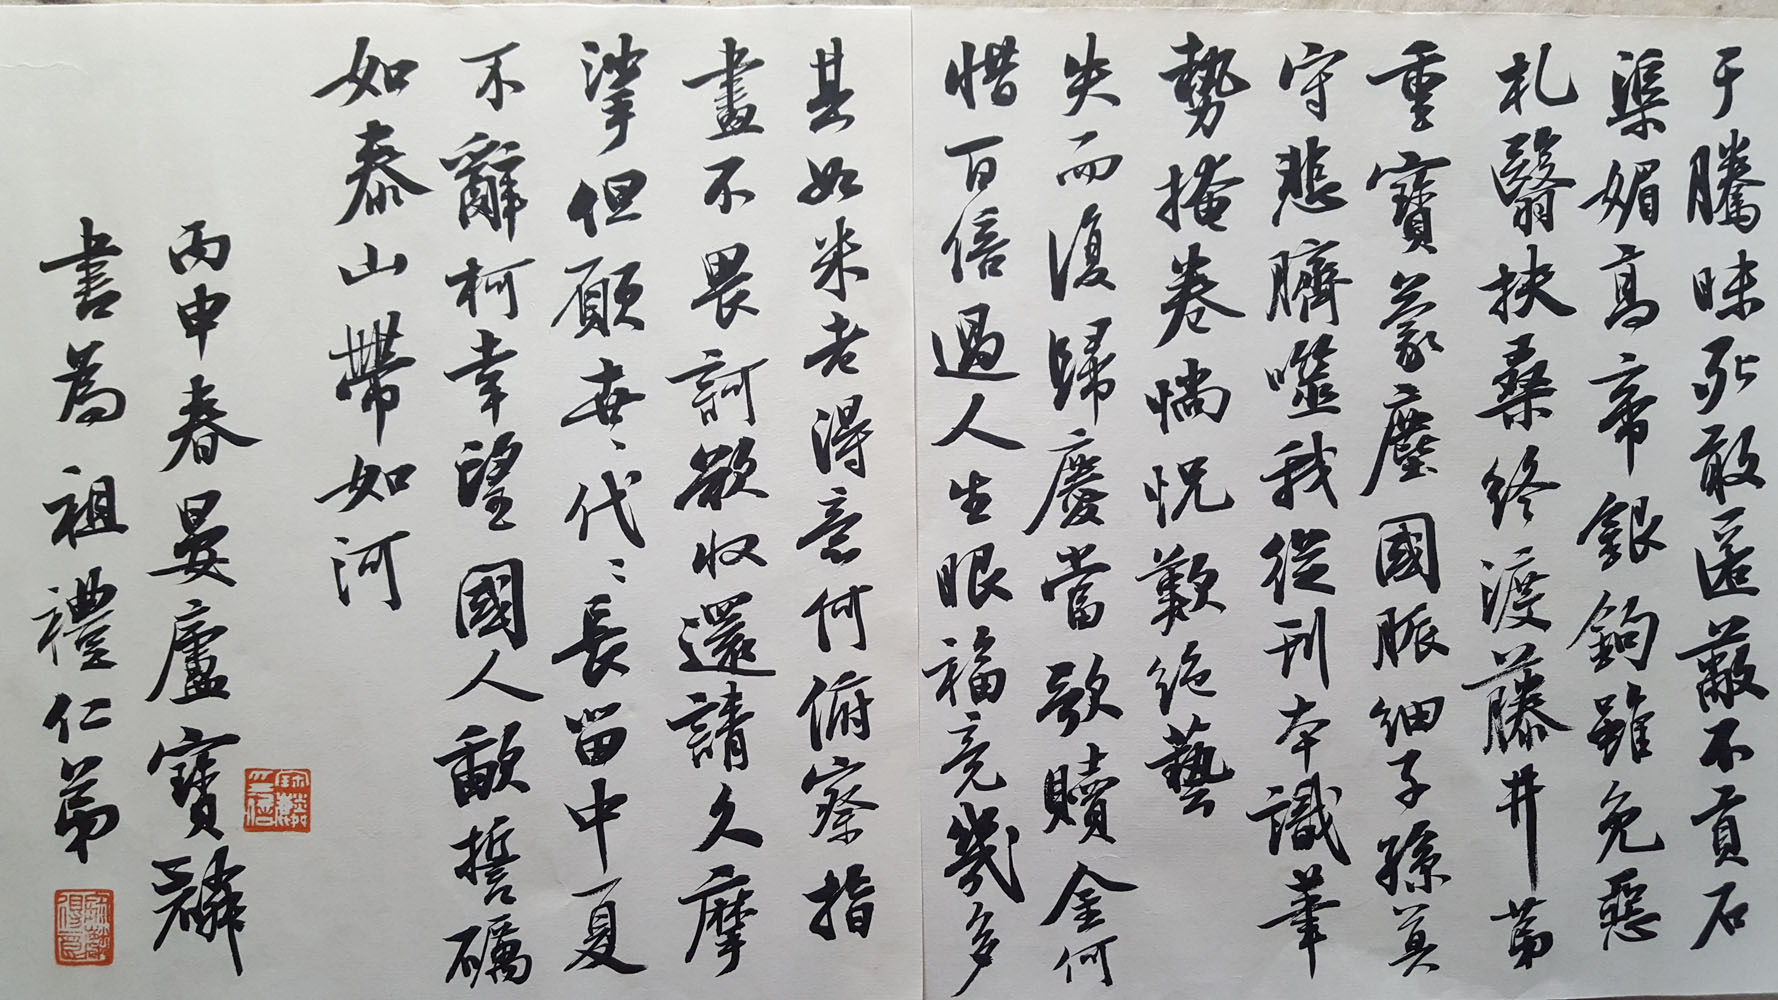 于騰昧死敢匿蔽不貢石
渠媚高帝銀鉤雖免惡
札翳扶桑終渡藤井第
重寶蒙塵國脈細子孫莫
守悲臍噬我從刊本識筆
勢掩卷惝怳歎絕藝
失而復歸慶當歌贖金何
惜百倍過人生眼福竟幾多
其如米老得意何俯察指
畫不畏訶欲收還請久摩
挲但願世〻代〻長留中夏
不辭柯幸望國人歃誓礪
如泰山帶如河
丙申春晏廬寶麟
書為祖禮仁弟